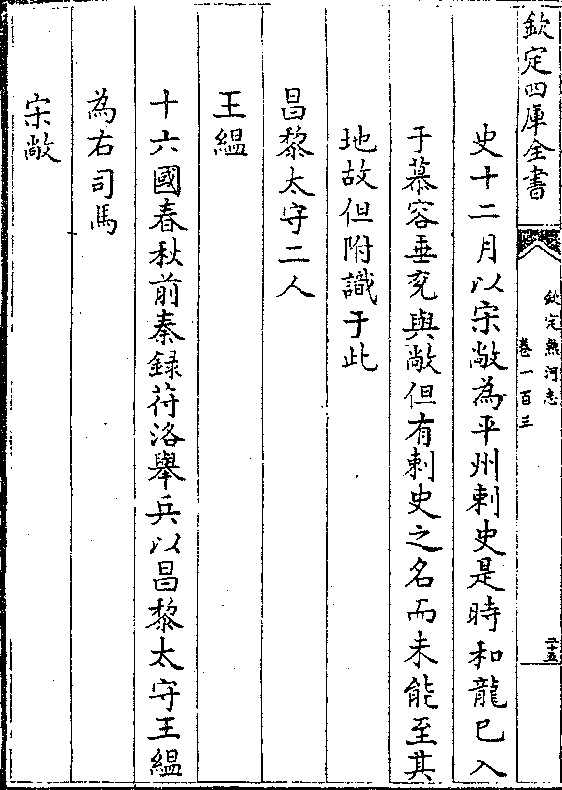 欽定四庫全書
欽定熱河志
卷一百三
二十五
史十二月以宋敞為平州刺史是時和龍已入
于慕容垂兖與敞但有刺史之名而未能至其
地故但附識于此
昌黎太守二人
王緼
十六國春秋前秦錄苻洛舉兵以昌黎太守王緼
為右司馬
宋敞